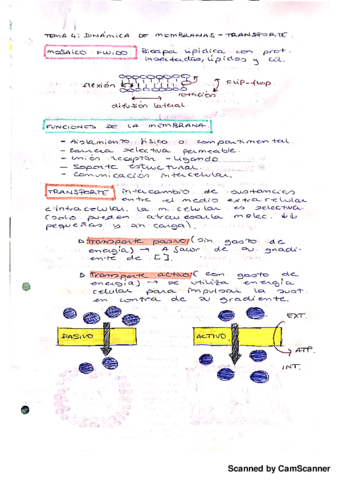 TEMA 4: DINÁMICA DE MEMBRANAS - TRANSPORTE.
MOSAICO FLUIDO Bicapa lipídica con prot.
insectadas, lípidos y
flexión flip-flop.
rotación
difusión lateral
FUNCIONES DE LA MEMBRANA
- Aislamiento físico o compartimental
- Barrera selectiva permeable.
- Unión receptor - ligando
- Soporte estructural.
- Comunicación intercelular.
TRANSPORTE intercambio de sustancias
entre el medio extracelular
e intracelular. La m. celular es selectiva
(solo pueden atravesarla molec.
pequeñas y sin carga).
Transporte pasivo (sin gasto de
energía) → A favor de su gradi-
ente de [ ].
Transporte activo (con gasto de
energía) → se utiliza energía
celular para impulsar la sust.
en contra de su gradiente.
EXT.
PASIVO ACTIVO
ATP.
INT.
Scanned by CamScanner